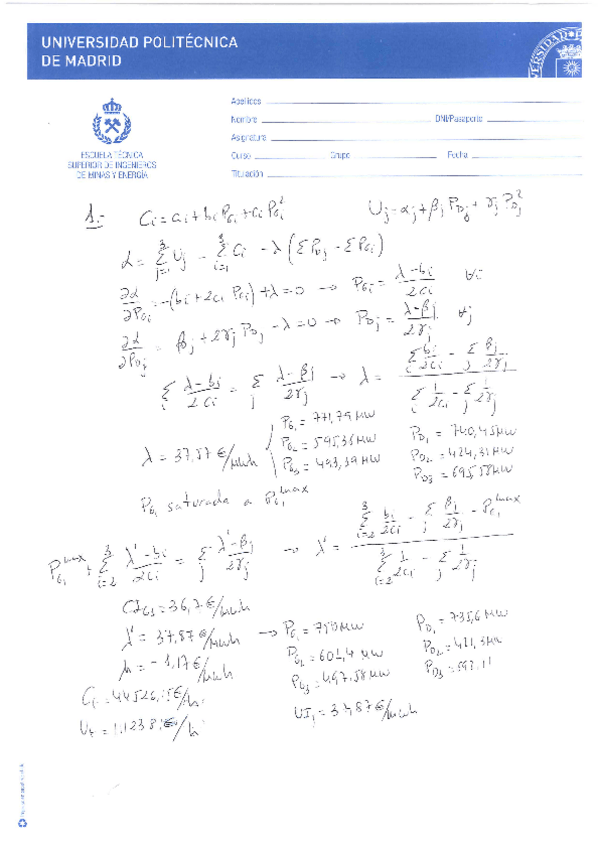 UNIVERSIDAD POLITÉCNICA
DE MADRID
ESCUELA TÉCNICA
SUPERIOR DE INGENIEROS
DE MINAS Y ENERGÍA
Apellidos
Nombre DNI/Pasaporte
Asignatura
Curso Grupo Fecha
Titulación
1.- Ci = ai + bi PGi + ci PGi² Uj = αj + βj PDj + γj PDj²
L = Σ(j=1..3) Uj − Σ(i=1..3) Ci − λ (Σ PDj − Σ PGi)
∂L/∂PGi = −(bi + 2ci PGi) + λ = 0 → PGi = (λ − bi)/2ci ∀i
∂L/∂PDj = βj + 2γj PDj − λ = 0 → PDj = (λ − βj)/2γj ∀j
Σi (λ − bi)/2ci = Σj (λ − βj)/2γj → λ = (Σi bi/2ci − Σj βj/2γj) / (Σi 1/2ci − Σj 1/2γj)
λ = 37,57 €/MWh
PG1 = 771,79 MW PD1 = 740,45 MW
PG2 = 595,35 MW PD2 = 424,31 MW
PG3 = 493,39 MW PD3 = 695,58 MW
PG1 saturada a PG1 max
PG1 max + Σ(i=2..3) (λ' − bi)/2ci = Σj (λ' − βj)/2γj → λ' = (Σ(i=2..3) bi/2ci − Σj βj/2γj − PG1 max) / (Σ(i=2..3) 1/2ci − Σj 1/2γj)
= 36,7 €/MWh
λ' = 37,87 €/MWh → PG1 = 750 MW PD1 = 735,6 MW
μ = −1,17 €/MWh PG2 = 601,4 MW PD2 = 421,3 MW
PG3 = 497,58 MW PD3
€/h
€/h